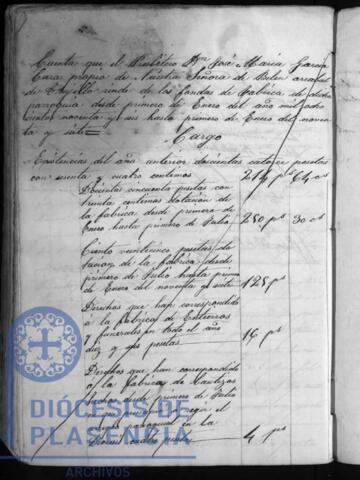 Cuentas que el Presbítero Dn José Maria Garcia
Cura propio de Nuestra Señora de Belen
de rinde de los fondos de Fabrica de dicha
parroquia desde primero de Enero del año mil ocho
cientos noventa y seis hasta primero de Enero del noven
ta y siete
Cargo
Existencias del año anterior doscientas catorce pesetas
con sesenta y cuatro centimos 214 ps 64 cs
Doscientas cincuenta pesetas con
treinta centimos dotacion de
la fabrica desde primero de
Enero hasta primero de Julio 250 ps 30 cs
Ciento veinticinco pesetas do
tacion de la fabrica desde
primero de Julio hasta prime
ro de Enero del noventa y siete 125 ps
Derechos que han correspondido
a la fabrica de Entierros
y funerales en todo el año
diez y seis pesetas 16 ps
Derechos que han correspondido
a la fabrica de Bautizos
hechos desde primero de Julio
en que principió a regir el
parroquial en la
cuatro pesetas 4 ps
DIÓCESIS DE
PLASENCIA
ARCHIVOS